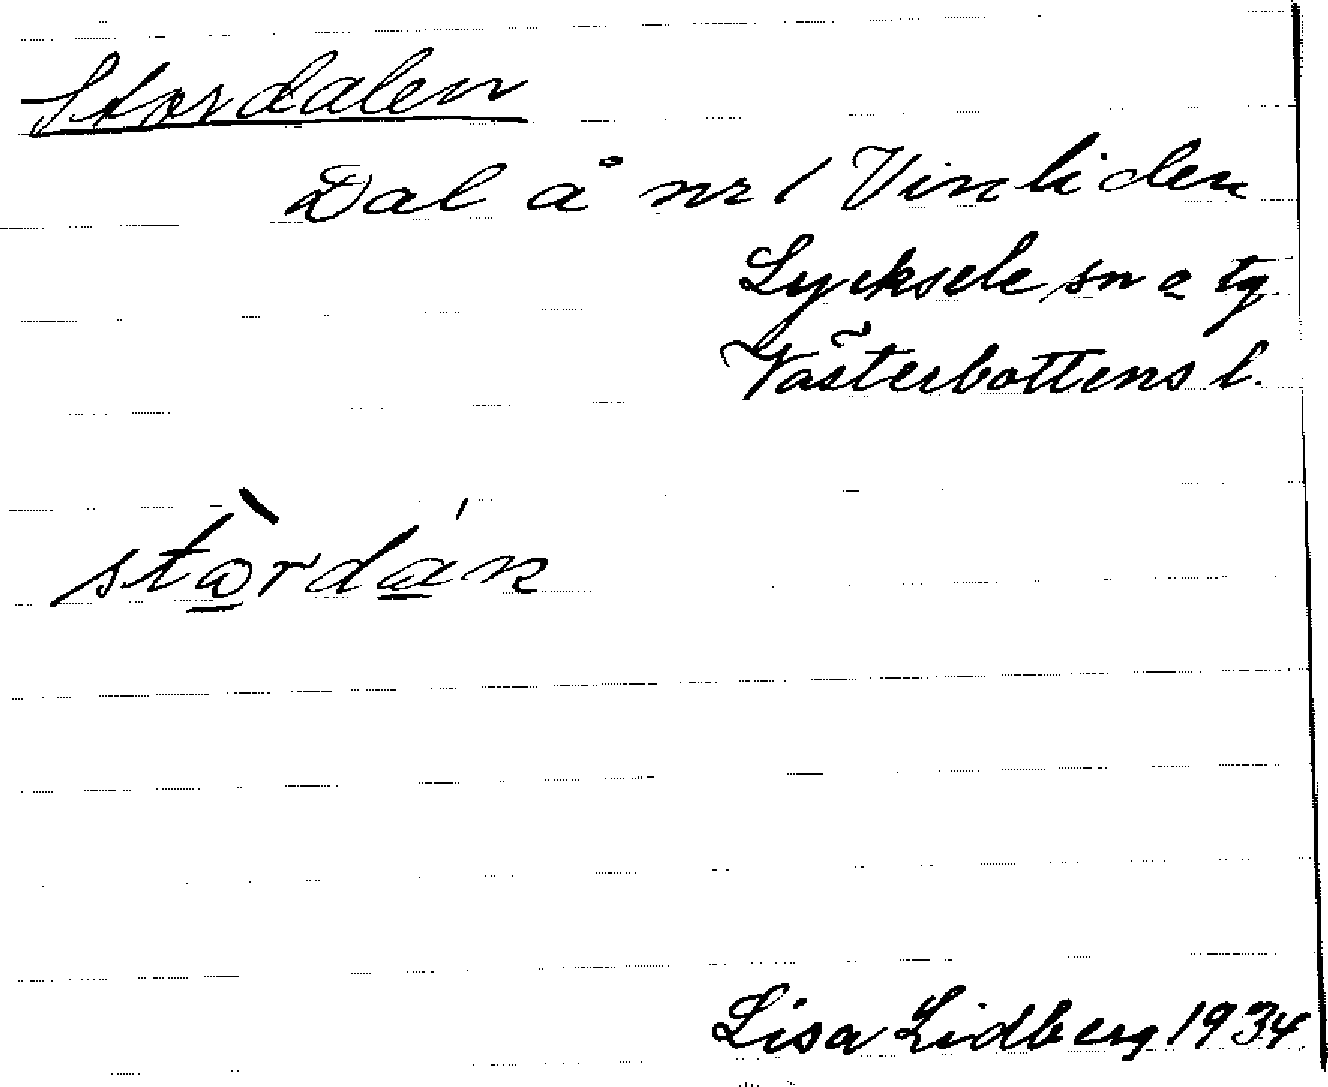 Stordalen
Dal å nr 1 Vinliden
Lycksele sn o tg
Västerbottens l.
stò̲rdá̲n
Lisa Lidberg 1934